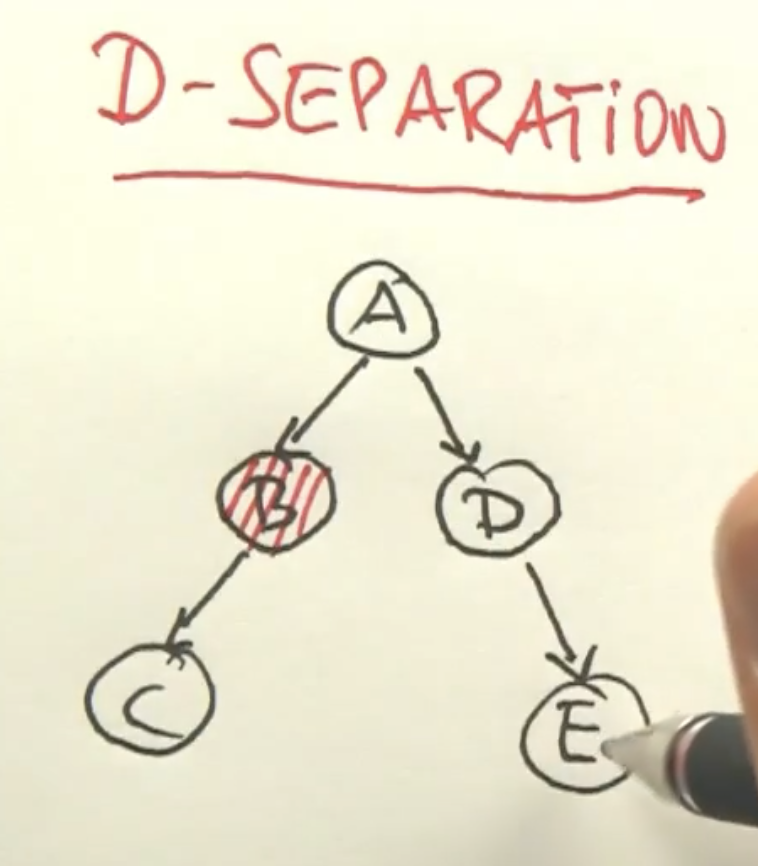 D-SEPARATiON
A
B
D
C
E